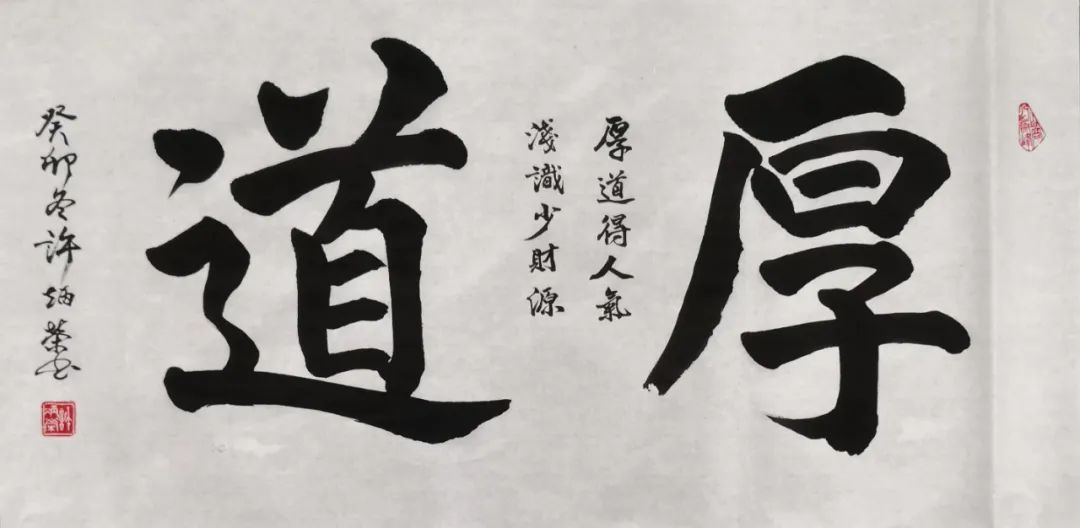 厚道
厚道得人氣
淺識少財源
癸卯冬許炳榮书